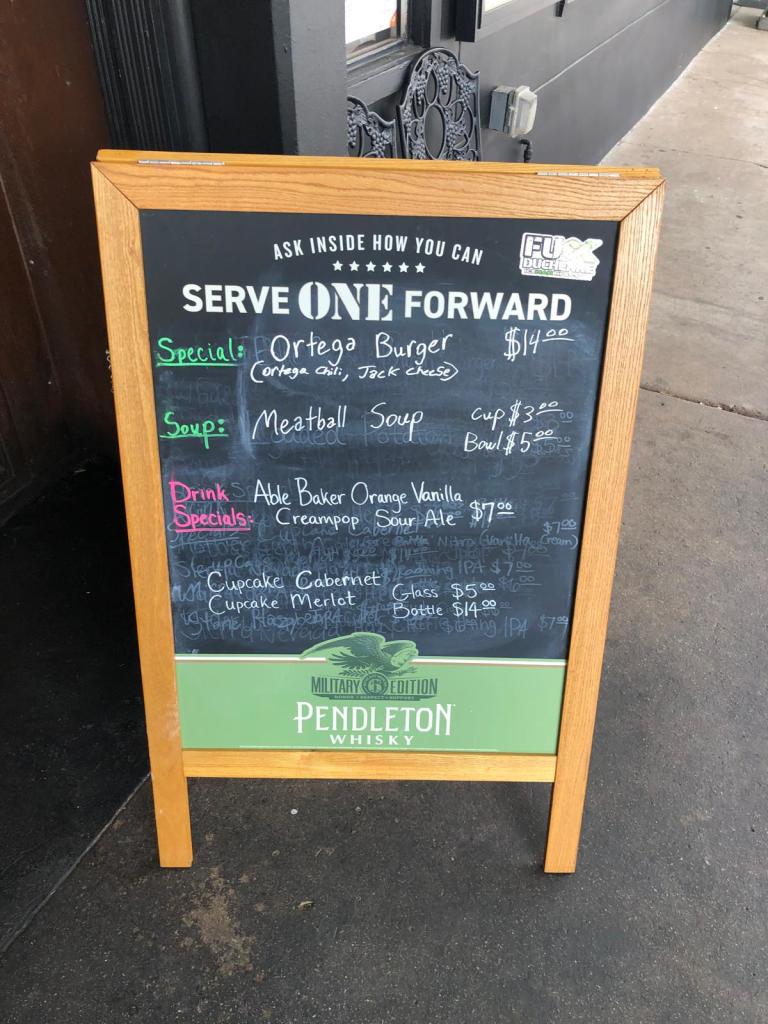 ASK INSIDE HOW YOU CAN
FU
DUCHENNE
SERVE ONE FORWARD
Special: Ortega Burger $14.00
(Ortega Chili, Jack Cheese)
Soup: Meatball Soup Cup $3.00
Bowl $5.00
Drink Able Baker Orange Vanilla
Specials: Creampop Sour Ale $7.00
Cupcake Cabernet Glass $5.00
Cupcake Merlot Bottle $14.00
MILITARY EDITION
HONOR • RESPECT • SUPPORT
PENDLETON
WHISKY